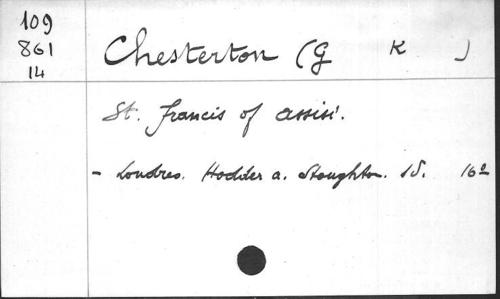 109
861
14
Chesterton (G K )
St. Francis of Assisi.
- Londres. Hodder a. Stoughton. SS. 16º